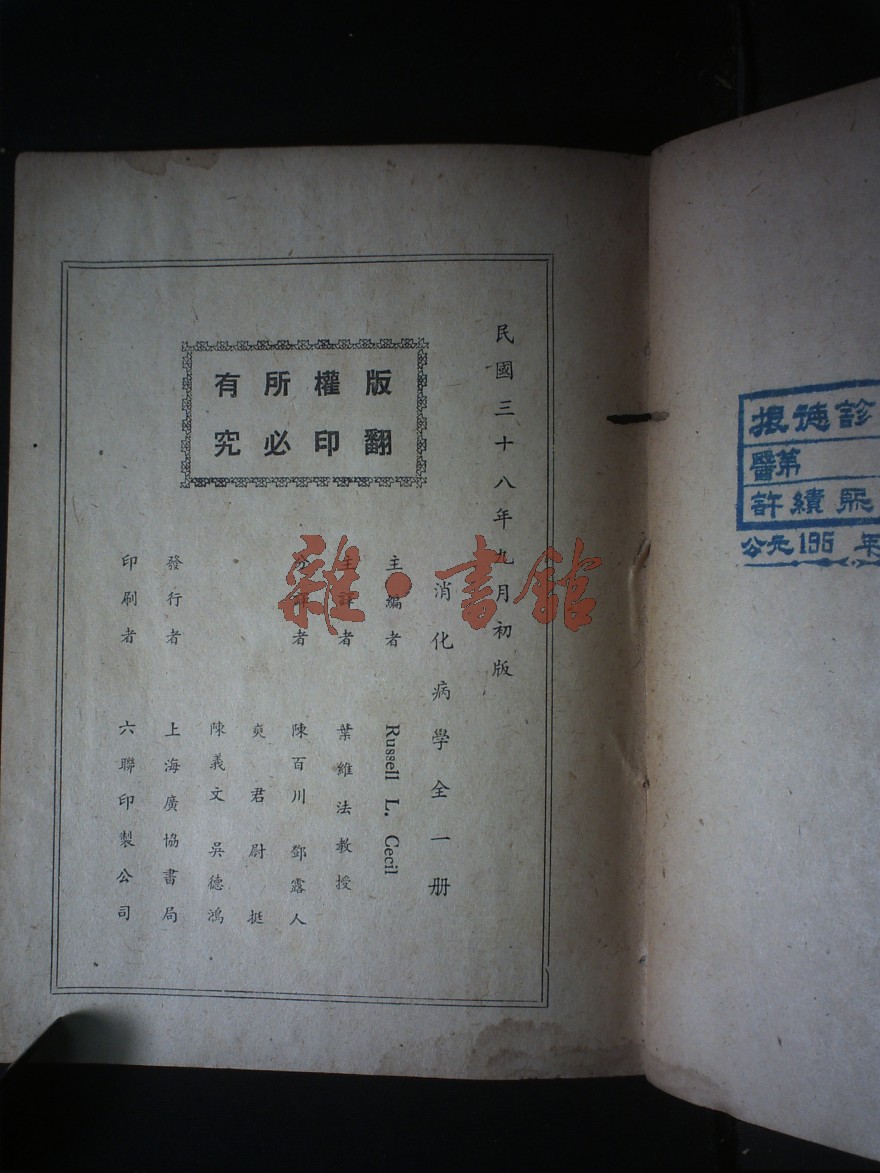 民國三十八年九月初版
版權所有
翻印必究
消化病學全一册
主編者 Russell L. Cecil
主譯者 葉維法教授
分譯者 陳百川 鄧露人
奭君尉 挺
陳義文 吳德鴻
發行者 上海廣協書局
印刷者 六聯印製公司
雜·書館
根德診
醫第
許績熙
公元195 年